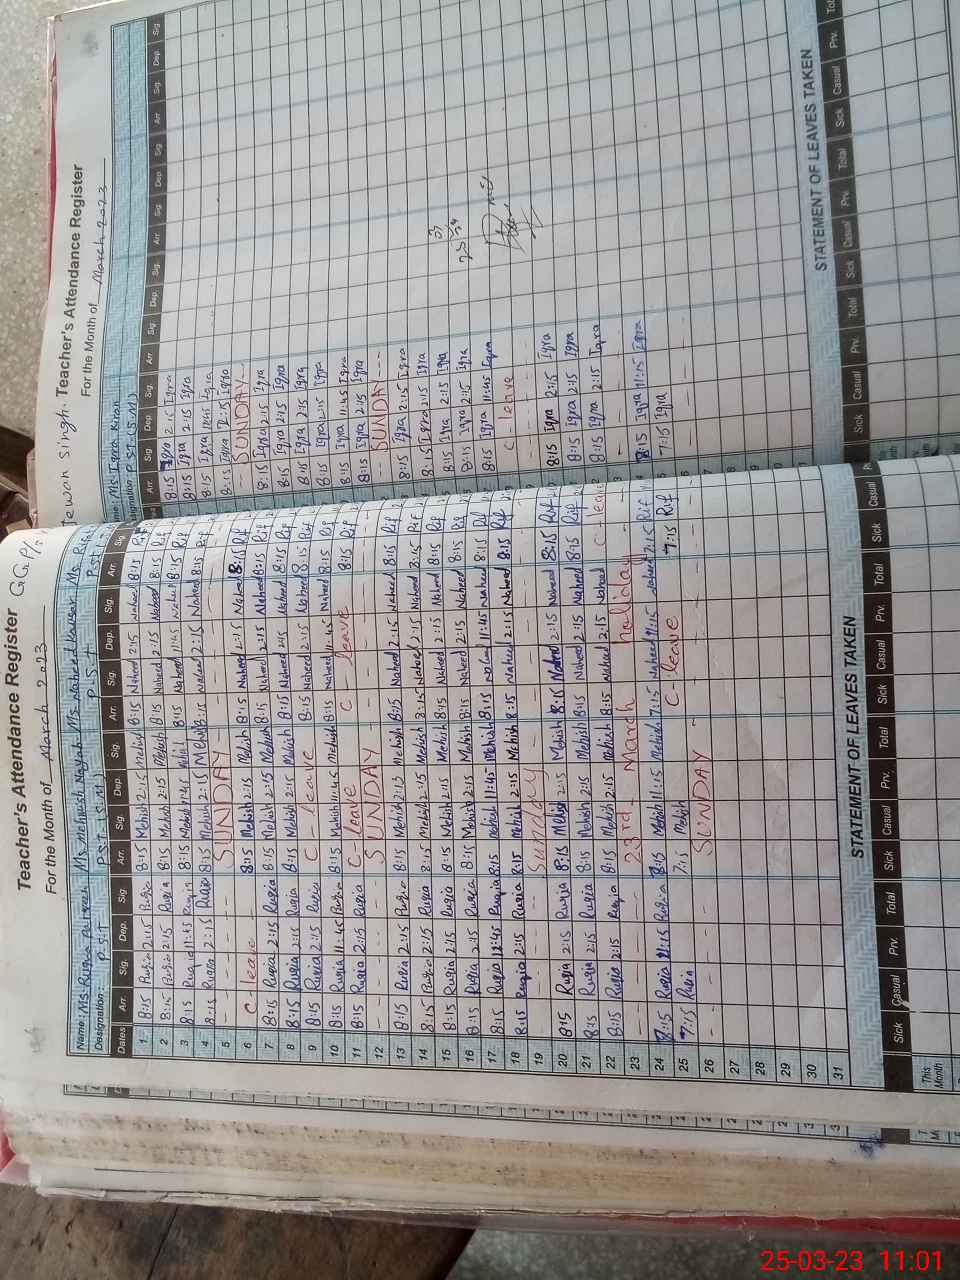 Teacher's Attendance Register
For the Month of March 2023
Name: Ms Ruqia Parveen Ms Mehish Nayab Ms Naheed Kausar Ms Rif
Designation: P.S.T P.S.T (S.M) P.S.T P.S.T
Dates Arr. Sig. Dep. Sig. Arr. Sig. Dep. Sig. Arr. Sig. Dep. Sig. Arr. Sig.
1 8:15 Ruqia 2:15 Ruqia 8:15 Mehish 2:15 Mehish 8:15 Naheed 2:15 Naheed 8:15 Rif
2 8:15 Ruqia 2:15 Ruqia 8:15 Mehish 2:15 Mehish 8:15 Naheed 2:15 Naheed 8:15 Rif
3 8:15 Ruqia 11:45 Ruqia 8:15 Mehish 11:45 Mehish 8:15 Naheed 11:45 Naheed 8:15 Rif
4 8:15 Ruqia 2:15 Ruqia 8:15 Mehish 2:15 Mehish 8:15 Naheed 2:15 Naheed 8:15 Rif
5 SUNDAY
6 C - leave 8:15 Mehish 2:15 Mehish 8:15 Naheed 2:15 Naheed 8:15 Rif
7 8:15 Ruqia 2:15 Ruqia 8:15 Mehish 2:15 Mehish 8:15 Naheed 2:15 Naheed 8:15 Rif
8 8:15 Ruqia 2:15 Ruqia 8:15 Mehish 2:15 Mehish 8:15 Naheed 2:15 Naheed 8:15 Rif
9 8:15 Ruqia 2:15 Ruqia C - leave 8:15 Naheed 2:15 Naheed 8:15 Rif
10 8:15 Ruqia 11:45 Ruqia 8:15 Mehish 11:45 Mehish 8:15 Naheed 11:45 Naheed 8:15 Rif
11 8:15 Ruqia 2:15 Ruqia C - leave C - leave 8:15 Rif
12 SUNDAY
13 8:15 Ruqia 2:15 Ruqia 8:15 Mehish 2:15 Mehish 8:15 Naheed 2:15 Naheed 8:15 Rif
14 8:15 Ruqia 2:15 Ruqia 8:15 Mehish 2:15 Mehish 8:15 Naheed 2:15 Naheed 8:15 Rif
15 8:15 Ruqia 2:15 Ruqia 8:15 Mehish 2:15 Mehish 8:15 Naheed 2:15 Naheed 8:15 Rif
16 8:15 Ruqia 2:15 Ruqia 8:15 Mehish 2:15 Mehish 8:15 Naheed 2:15 Naheed 8:15 Rif
17 8:15 Ruqia 11:45 Ruqia 8:15 Mehish 11:45 Mehish 8:15 Naheed 11:45 Naheed 8:15 Rif
18 8:15 Ruqia 2:15 Ruqia 8:15 Mehish 2:15 Mehish 8:15 Naheed 2:15 Naheed 8:15 Rif
19 Sunday
20 8:15 Ruqia 2:15 Ruqia 8:15 Mehish 2:15 Mehish 8:15 Naheed 2:15 Naheed 8:15 Rif
21 8:15 Ruqia 2:15 Ruqia 8:15 Mehish 2:15 Mehish 8:15 Naheed 2:15 Naheed 8:15 Rif
22 8:15 Ruqia 2:15 Ruqia 8:15 Mehish 2:15 Mehish 8:15 Naheed 2:15 Naheed C - leave
23 23rd March holiday
24 8:15 Ruqia 11:15 Ruqia 8:15 Mehish 11:15 Mehish 7:15 Naheed 11:15 Naheed 7:15 Rif
25 7:15 Ruqia 7:15 Mehish C - leave 7:15 Rif
26 SUNDAY
27
28
29
30
31
STATEMENT OF LEAVES TAKEN
Sick Casual Prv. Total Sick Casual Prv. Total Sick Casual Prv. Total Sick Casual
This Month
Teacher's Attendance Register
For the Month of March 2023
Name: Ms Iqra Kiran
Designation: P.S.T (S.M)
Arr. Sig Dep Sig. Arr. Sig. Dep. Sig. Arr. Sig. Dep. Sig. Arr. Sig. Dep. Sig
8:15 Iqra 2:15 Iqra
8:15 Iqra 2:15 Iqra
8:15 Iqra 11:45 Iqra
8:15 Iqra 2:15 Iqra
SUNDAY
8:15 Iqra 2:15 Iqra
8:15 Iqra 2:15 Iqra
8:15 Iqra 2:15 Iqra
8:15 Iqra 2:15 Iqra
8:15 Iqra 11:45 Iqra
8:15 Iqra 2:15 Iqra
SUNDAY
8:15 Iqra 2:15 Iqra
8:15 Iqra 2:15 Iqra
8:15 Iqra 2:15 Iqra
8:15 Iqra 2:15 Iqra
8:15 Iqra 11:45 Iqra
C - leave
8:15 Iqra 2:15 Iqra
8:15 Iqra 2:15 Iqra
8:15 Iqra 2:15 Iqra
8:15 Iqra 11:15 Iqra
7:15 Iqra
STATEMENT OF LEAVES TAKEN
Sick Casual Prv. Total Sick Casual Prv. Total Sick Casual Prv. Tot
25-03-23 11:01